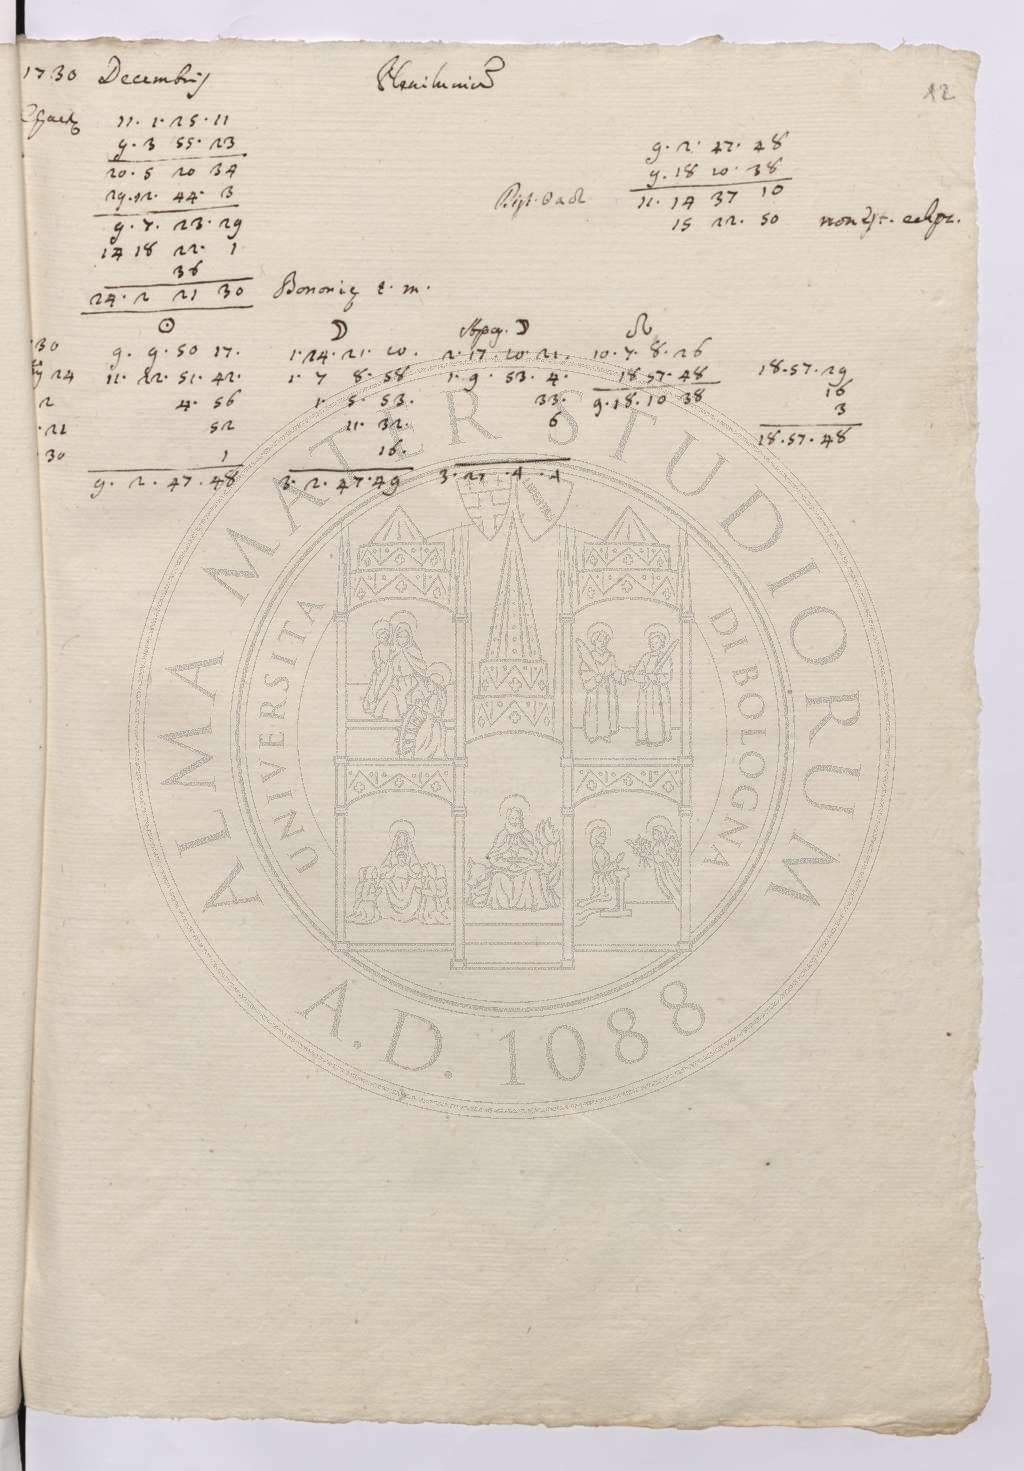 1730 Decembris Plenilunium
12
Epactæ 11. 1. 25. 11
9. 3 55. 23
20. 5 20 34
29. 12. 44. 3
9. 7. 23. 29
14 18 22. 1
36
24. 2 21 30 Bononię t. m.
9. 2. 47. 48
9. 18 10. 38
Dist. ☉ a ☊ 11. 14 37 10
15 22. 50 non est eclips.
☉ ☽ Apog. ☽ ☊
30 9. 9. 50 17. 1. 24. 21. 20. 2. 17. 20. 21. 10. 7. 8. 26
24 11. 22. 51. 42. 1. 7 8. 58 1. 9. 53. 4. 18 57. 48 18. 57. 29
2 4. 56 1. 5. 53. 33. 9. 18. 10 38 16
21 52 11. 32. 6 3
30 1 16. 18. 57. 48
9. 2. 47. 48 3. 2. 47. 49 3. 27. 4. 4
ALMA MATER STUDIORUM
UNIVERSITA DI BOLOGNA
LIBERTAS
A.D. 1088